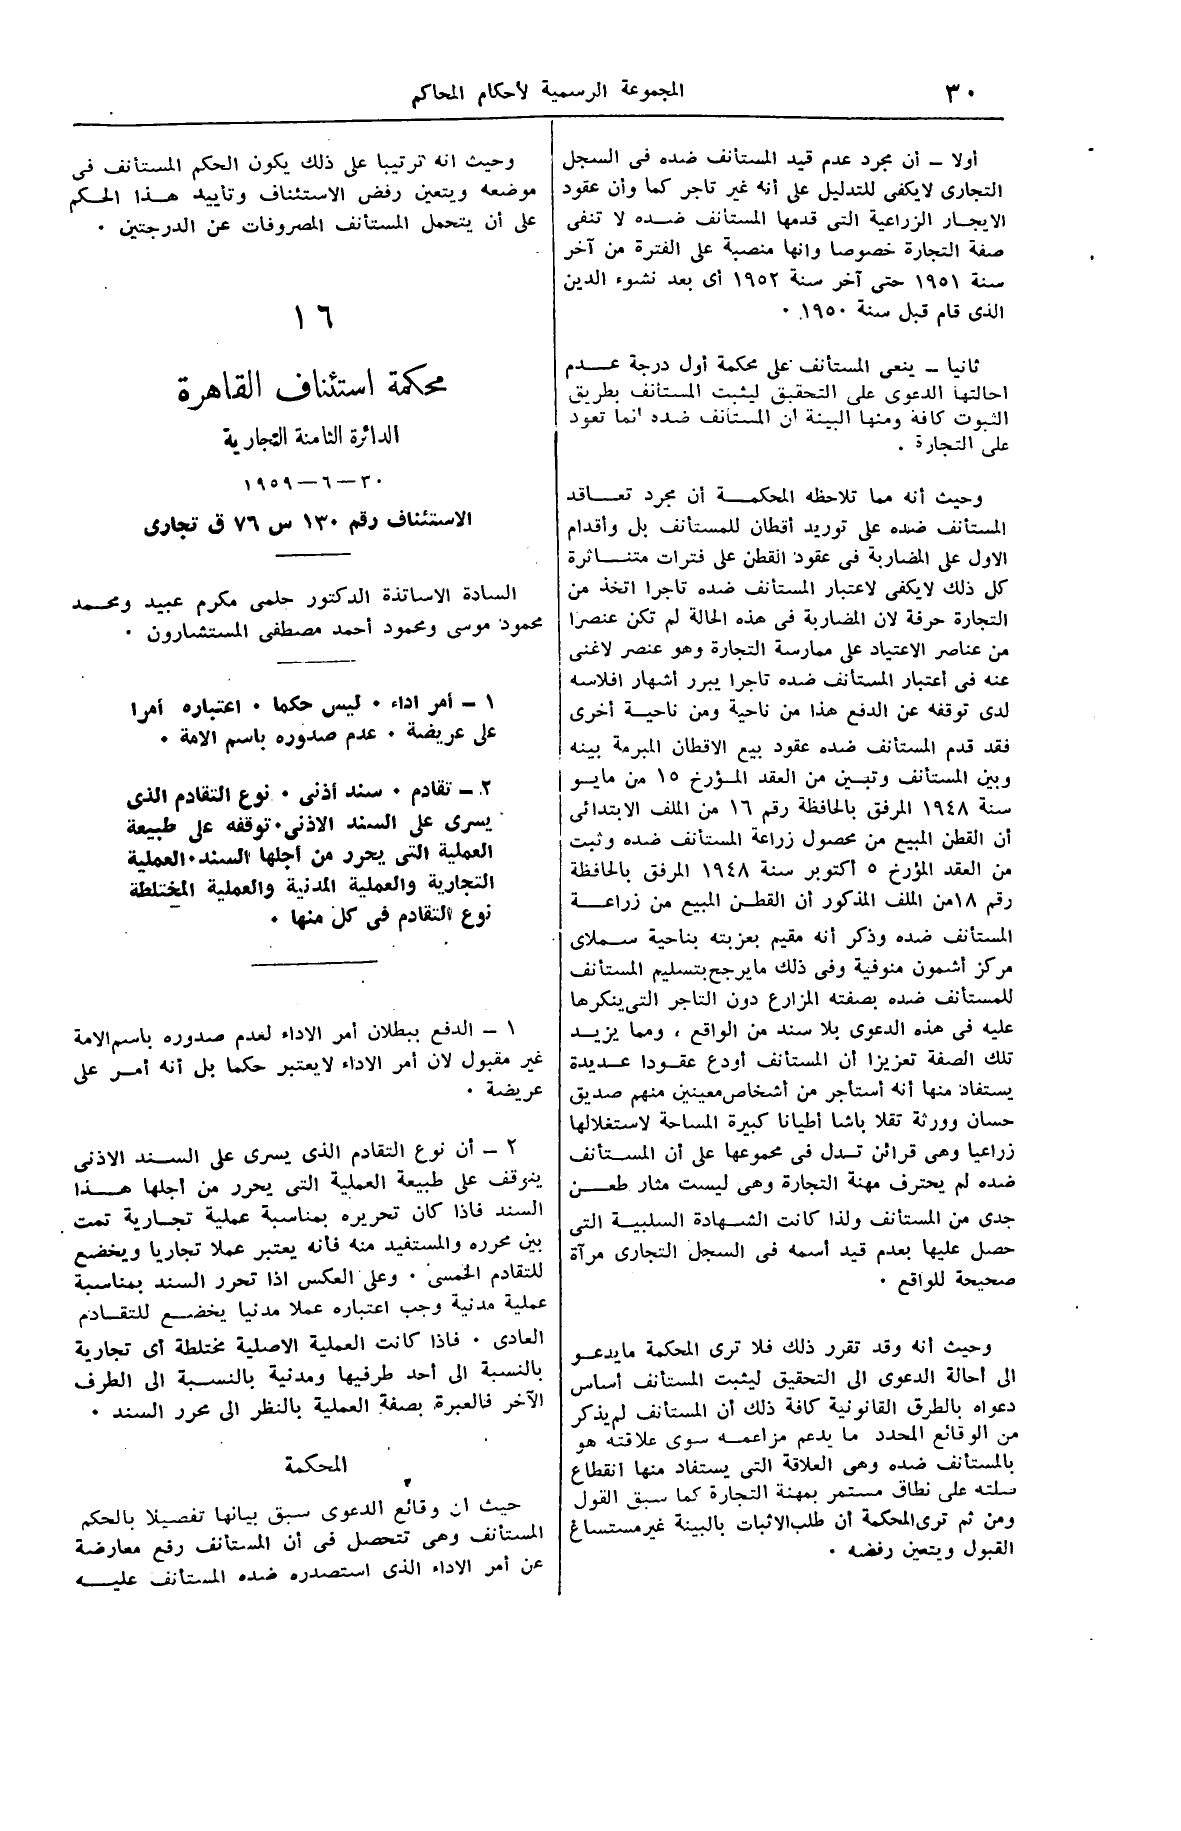 ٣٠
المجموعة الرسمية لأحكام المحاكم
أولا – أن مجرد عدم قيد المستأنف ضده فى السجل
التجارى لايكفى للتدليل على أنه غير تاجر كما وأن عقود
الايجار الزراعية التى قدمها المستأنف ضده لا تنفى
صفة التجارة خصوصا وانها منصبة على الفترة من آخر
سنة ١٩٥١ حتى آخر سنة ١٩٥٢ أى بعد نشوء الدين
الذى قام قبل سنة ١٩٥٠ ٠
ثانيا – ينعى المستأنف على محكمة أول درجة عدم
احالتها الدعوى على التحقيق ليثبت المستأنف بطريق
الثبوت كافة ومنها البينة أن المستأنف ضده انما تعود
على التجارة ٠
وحيث أنه مما تلاحظه المحكمة أن مجرد تعاقد
المستأنف ضده على توريد أقطان للمستأنف بل وأقدام
الاول على المضاربة فى عقود القطن على فترات متناثرة
كل ذلك لايكفى لاعتبار المستأنف ضده تاجرا اتخذ من
التجارة حرفة لان المضاربة فى هذه الحالة لم تكن عنصرا
من عناصر الاعتياد على ممارسة التجارة وهو عنصر لاغنى
عنه فى أعتبار المستأنف ضده تاجرا يبرر أشهار افلاسه
لدى توقفه عن الدفع هذا من ناحية ومن ناحية أخرى
فقد قدم المستأنف ضده عقود بيع الاقطان المبرمة بينه
وبين المستأنف وتبين من العقد المؤرخ ١٥ من مايو
سنة ١٩٤٨ المرفق بالحافظة رقم ١٦ من الملف الابتدائى
أن القطن المبيع من محصول زراعة المستأنف ضده وثبت
من العقد المؤرخ ٥ أكتوبر سنة ١٩٤٨ المرفق بالحافظة
رقم ١٨من الملف المذكور أن القطن المبيع من زراعة
المستأنف ضده وذكر أنه مقيم بعزبته بناحية سملاى
مركز أشمون منوفية وفى ذلك مايرجح بتسليم المستأنف
للمستأنف ضده بصفته المزارع دون التاجر التى ينكرها
عليه فى هذه الدعوى بلا سند من الواقع ، ومما يزيد
تلك الصفة تعزيزا أن المستأنف أودع عقودا عديدة
يستفاد منها أنه أستأجر من أشخاص معينين منهم صديق
حسان وورثة تقلا باشا أطيانا كبيرة المساحة لاستغلالها
زراعيا وهى قرائن تدل فى مجموعها على أن المستأنف
ضده لم يحترف مهنة التجارة وهى ليست مثار طعن
جدى من المستأنف ولذا كانت الشهادة السلبية التى
حصل عليها بعدم قيد أسمه فى السجل التجارى مرآة
صحيحة للواقع ٠
وحيث أنه وقد تقرر ذلك فلا ترى المحكمة مايدعو
الى أحالة الدعوى الى التحقيق ليثبت المستأنف أساس
دعواه بالطرق القانونية كافة ذلك أن المستأنف لم يذكر
من الوقائع المحدد ما يدعم مزاعمه سوى علاقته هو
بالمستأنف ضده وهى العلاقة التى يستفاد منها انقطاع
سلته على نطاق مستمر بمهنة التجارة كما سبق القول
ومن ثم ترى المحكمة أن طلب الاثبات بالبينة غير مستساغ
القبول ويتعين رفضه ٠
وحيث انه ترتيبا على ذلك يكون الحكم المستأنف فى
موضعه ويتعين رفض الاستئناف وتأييد هذا الحكم
على أن يتحمل المستأنف المصروفات عن الدرجتين ٠
١٦
محكمة استئناف القاهرة
الدائرة الثامنة التجارية
٣٠–٦–١٩٥٩
الاستئناف رقم ١٣٠ س ٧٦ ق تجارى
السادة الاساتذة الدكتور حلمى مكرم عبيد ومحمد
محمود موسى ومحمود أحمد مصطفى المستشارون ٠
١ – أمر اداء ٠ ليس حكما ٠ اعتباره أمرا
على عريضة ٠ عدم صدوره باسم الامة ٠
٢ – تقادم ٠ سند أذنى ٠ نوع التقادم الذى
يسرى على السند الاذنى ٠ توقفه على طبيعة
العملية التى يحرر من أجلها السند ٠ العملية
التجارية والعملية المدنية والعملية المختلطة
نوع التقادم فى كل منها ٠
١ – الدفع ببطلان أمر الاداء لعدم صدوره باسم الامة
غير مقبول لان أمر الاداء لايعتبر حكما بل أنه أمر على
عريضة ٠
٢ – أن نوع التقادم الذى يسرى على السند الاذنى
يتوقف على طبيعة العملية التى يحرر من أجلها هذا
السند فاذا كان تحريره بمناسبة عملية تجارية تمت
بين محرره والمستفيد منه فأنه يعتبر عملا تجاريا ويخضع
للتقادم الخمسى ٠ وعلى العكس اذا تحرر السند بمناسبة
عملية مدنية وجب اعتباره عملا مدنيا يخضع للتقادم
العادى ٠ فاذا كانت العملية الاصلية مختلطة أى تجارية
بالنسبة الى أحد طرفيها ومدنية بالنسبة الى الطرف
الآخر فالعبرة بصفة العملية بالنظر الى محرر السند ٠
المحكمة
حيث ان وقائع الدعوى سبق بيانها تفصيلا بالحكم
المستأنف وهى تتحصل فى أن المستأنف رفع معارضة
عن أمر الاداء الذى استصدره ضده المستأنف عليه